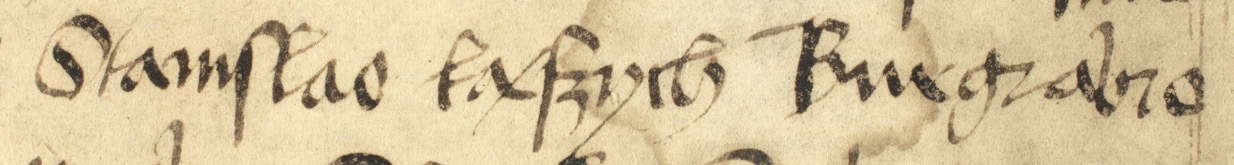 Stanislao laxszych Burgrabio